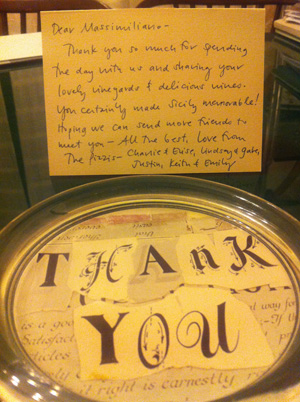 Dear Massimiliano-
Thank you so much for spending
the day with us and sharing your
lovely vineyards & delicious wines.
You certainly made Sicily memorable!
Hoping we can send more friends to
meet you - All the best, Love from
The Pizzis - Charlie & Elise, Lindsay & Gabe,
Justin, Keith & Emily
THANK
YOU
is a good
Satisfact
rticles
it right is earnestly
way for